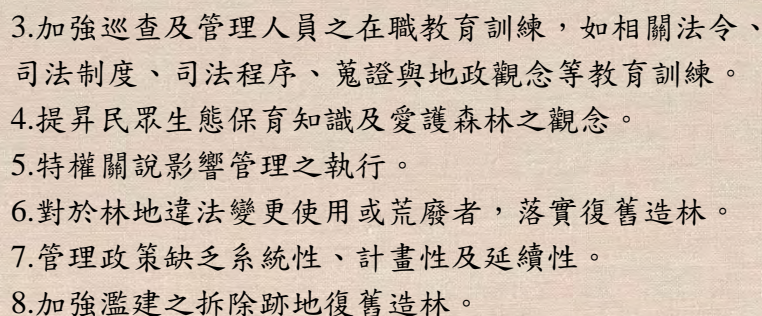 3.加強巡查及管理人員之在職教育訓練，如相關法令、
司法制度、司法程序、蒐證與地政觀念等教育訓練。
4.提昇民眾生態保育知識及愛護森林之觀念。
5.特權關說影響管理之執行。
6.對於林地違法變更使用或荒廢者，落實復舊造林。
7.管理政策缺乏系統性、計畫性及延續性。
8.加強濫建之拆除跡地復舊造林。